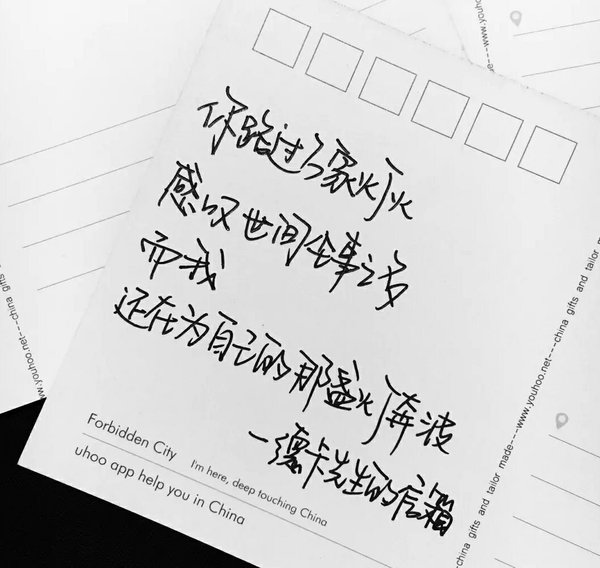 你路过万家灯火
感叹世间幸事之多
而我
还在为自己的那盏灯奔波
一德卡先生的信箱
Forbidden City I'm here, deep touching China
uhoo app help you in China
china gifts and tailor made---www.youhoo.net---china gifts and tailor made---www.youhoo.net
www.youhoo.net---china gifts
made---www.youhoo